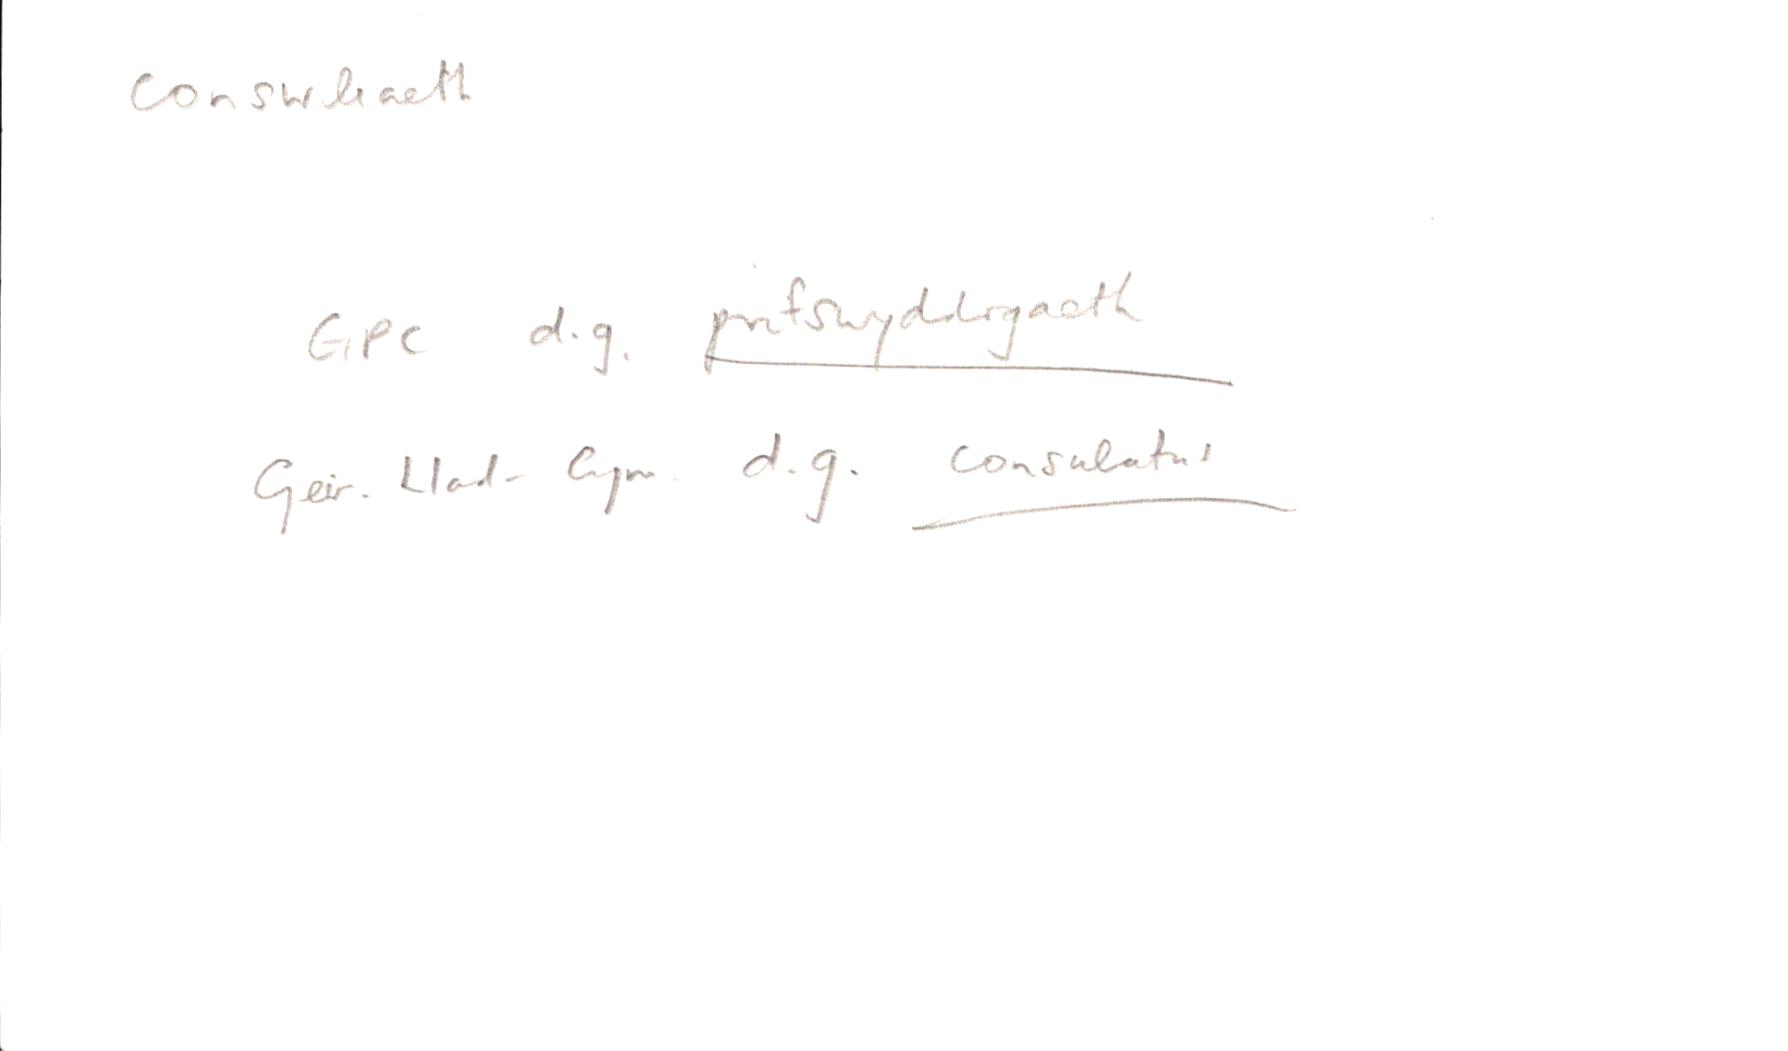 conswliaeth
GPC d.g. prifswyddogaeth
Geir. Llad-Cym. d.g. consulatus